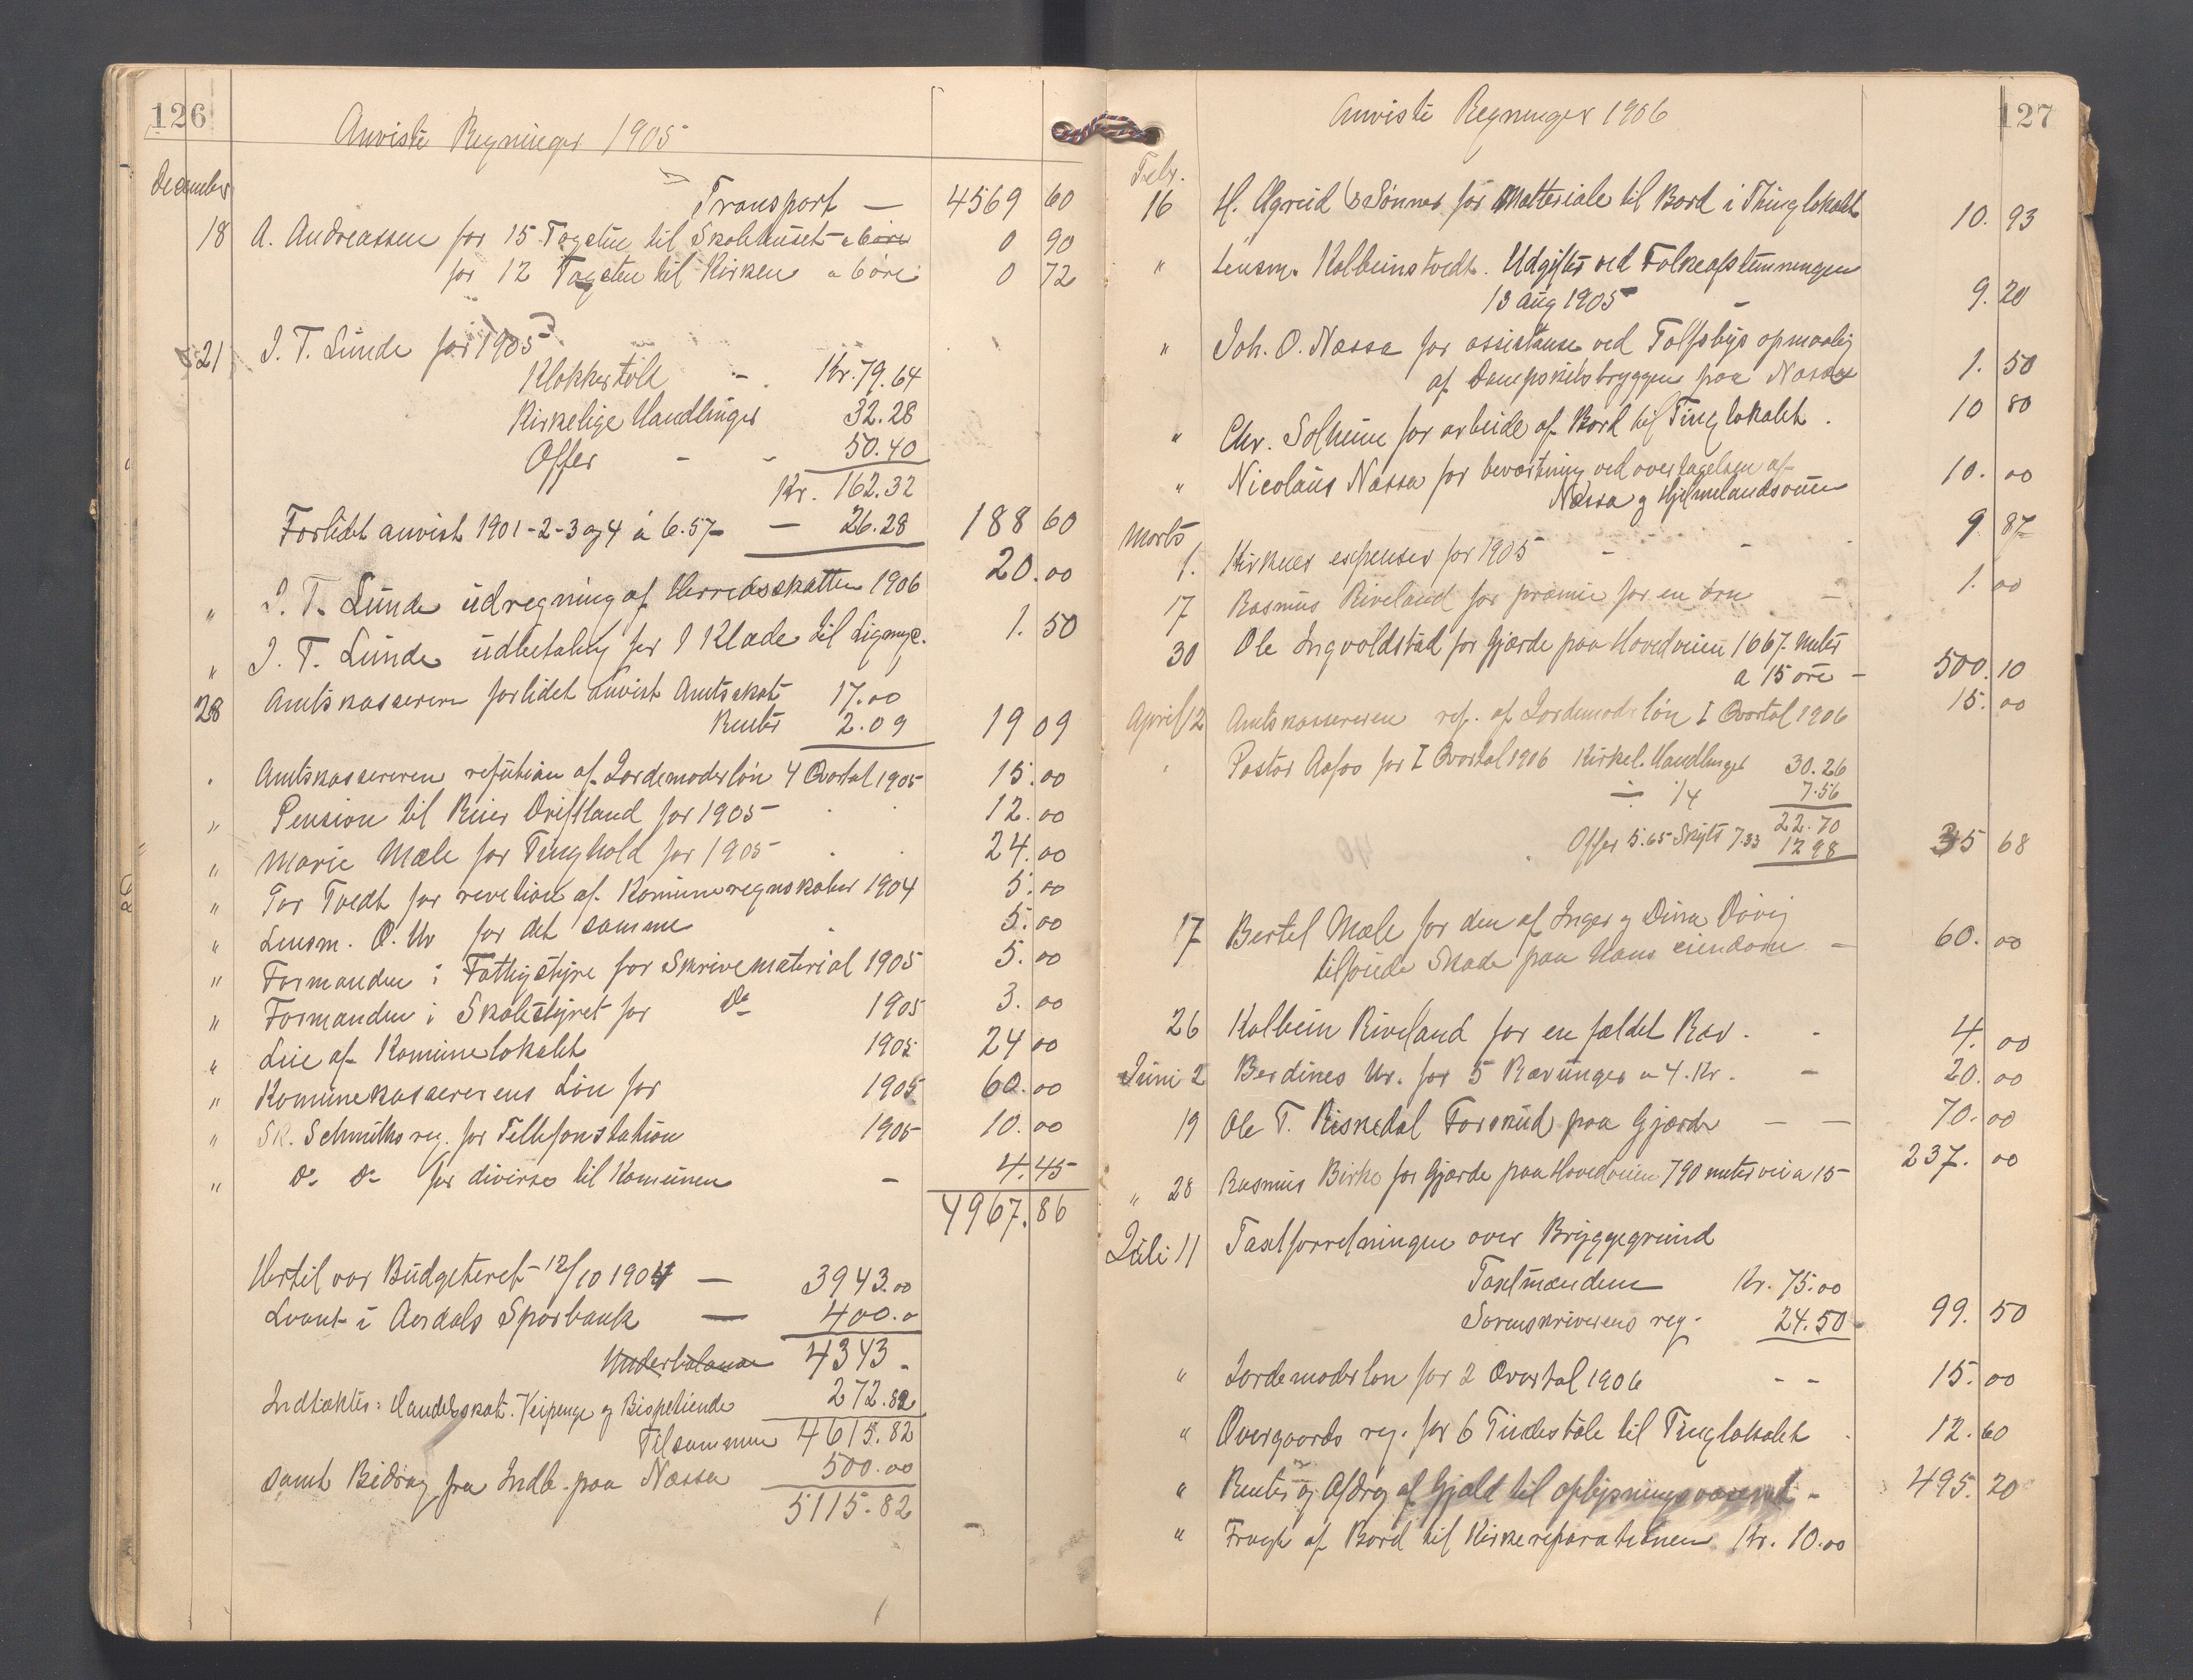 126
Anviste Regninger 1905
December
Transport — 4569 60
18 A. Andreassen for 15 Tagsten til Skolehuset a 6 øre 0 90
for 12 Tagsten til Kirken a 6 øre 0 72
21 J. T. Lunde for 1905
Klokkertold - Kr. 79.64
Kirkelige Handlinger 32.28
Offer - - 50.40
Kr. 162.32
Forlidet anvist 1901-2-3 og 4 á 6.57 — 26.28 188 60
" J. T. Lunde udregning af Herredsskatten 1906 20.00
" J. T. Lunde udbetaling for 1 Klade til Ligng. 1.50
28 Amtskassereren forlidet anvist Amtsskat 17.00
Renter 2.09 19 09
" Amtskassereren refution af Jordemoderløn 4 Qvartal 1905 15.00
" Pension til Reier Driftland for 1905 12.00
" Marie Mæle for Tinghold for 1905 24.00
" Tor Tvedt for revetion af Komuneregnskaber 1904 5.00
" Lensm. O. Ur for det samme 5.00
" Formanden i Fattigstyre for Skrivematerial 1905 5.00
" Formanden i Skolestyret for Do 1905 3.00
" Leie af Komunelokalet 1905 24 00
" Komunekassererens Løn for 1905 60.00
" Sk. Schmiths reg. for Tellefonstation 1905 10.00
" Do Do for diverse til Komunen - 4.45
4967.86
Hertil var Budgeteret 12/10 1904 — 3943.00
Laant i Aardals Sparbank — 400.0
Underbalanse 4343 -
Indtækter: Handelsskat. Veipenge og Bispetiende 272.82
Tilsammen 4615.82
samt Bidrag fra Indb. paa Næssa 500.00
5115.82
127
Anviste Regninger 1906
Febr.
16 H. Øgreid & Sønner for Matteriale til Bord i Thinglokalet 10.93
" Lensm. Kolbeinstvedt. Udgifter ved Folkeafstemningen
13 aug 1905 - 9.20
" Joh. O. Næssa for assistanse ved Tolfsbys opmaaling
af Dampskibsbryggen paa Næssa 1.50
" Chr. Solheim for arbeide af Bord til Tinglokalet. 10 80
" Nicolaus Næssa for beværtning ved overtagelsen af
Næssa og Hjelmelandsveien 10.00
Marts
1. Kirkens expenser for 1905 - - 9.87
17 Rasmus Riveland for præmie for en ørn - 1.00
30 Ole Ingvoldstad for Gjærde paa Hovedveien 1667 meter
a 15 øre - 500.10
April 12 Amtskassereren ref. af Jordemoderløn I Qvartal 1906 15.00
" Pastor Aafos for I Qvartal 1906 Kirkel. Handlinger 30.26
÷ 1/4 7.56
22.70
Offer 5.65 Skyts 7.33 12 98 35 68
17 Bertel Mæle for den af Inger og Dina Døvig
tilføiede Skade paa Hans eiendom - 60.00
26 Kolbein Riveland for en fældet Ræv. - 4.00
Juni 2 Berdines Ur. for 5 Rævunger a 4. Kr. - 20.00
19 Ole T. Riskedal Forskud paa Gjærde — — 70.00
" 28 Rasmus Birke for Gjærde paa Hovedveien 790 meter vei a 15 237.00
Juli 11 Taxtforretningen over Bryggegrund
Taxtmændene Kr. 75.00
Sorenskriverens reg. 24.50 99.50
" Jordemoderløn for 2 Qvartal 1906 - - 15.00
" Overgaards reg. for 6 Pindestole til Tinglokalet - 12.60
" Renter og Afdrag af Gjæld til oplysningsvæsenet - 495.20
" Fragt af Bord til Kirkereparationen Kr. 10.00